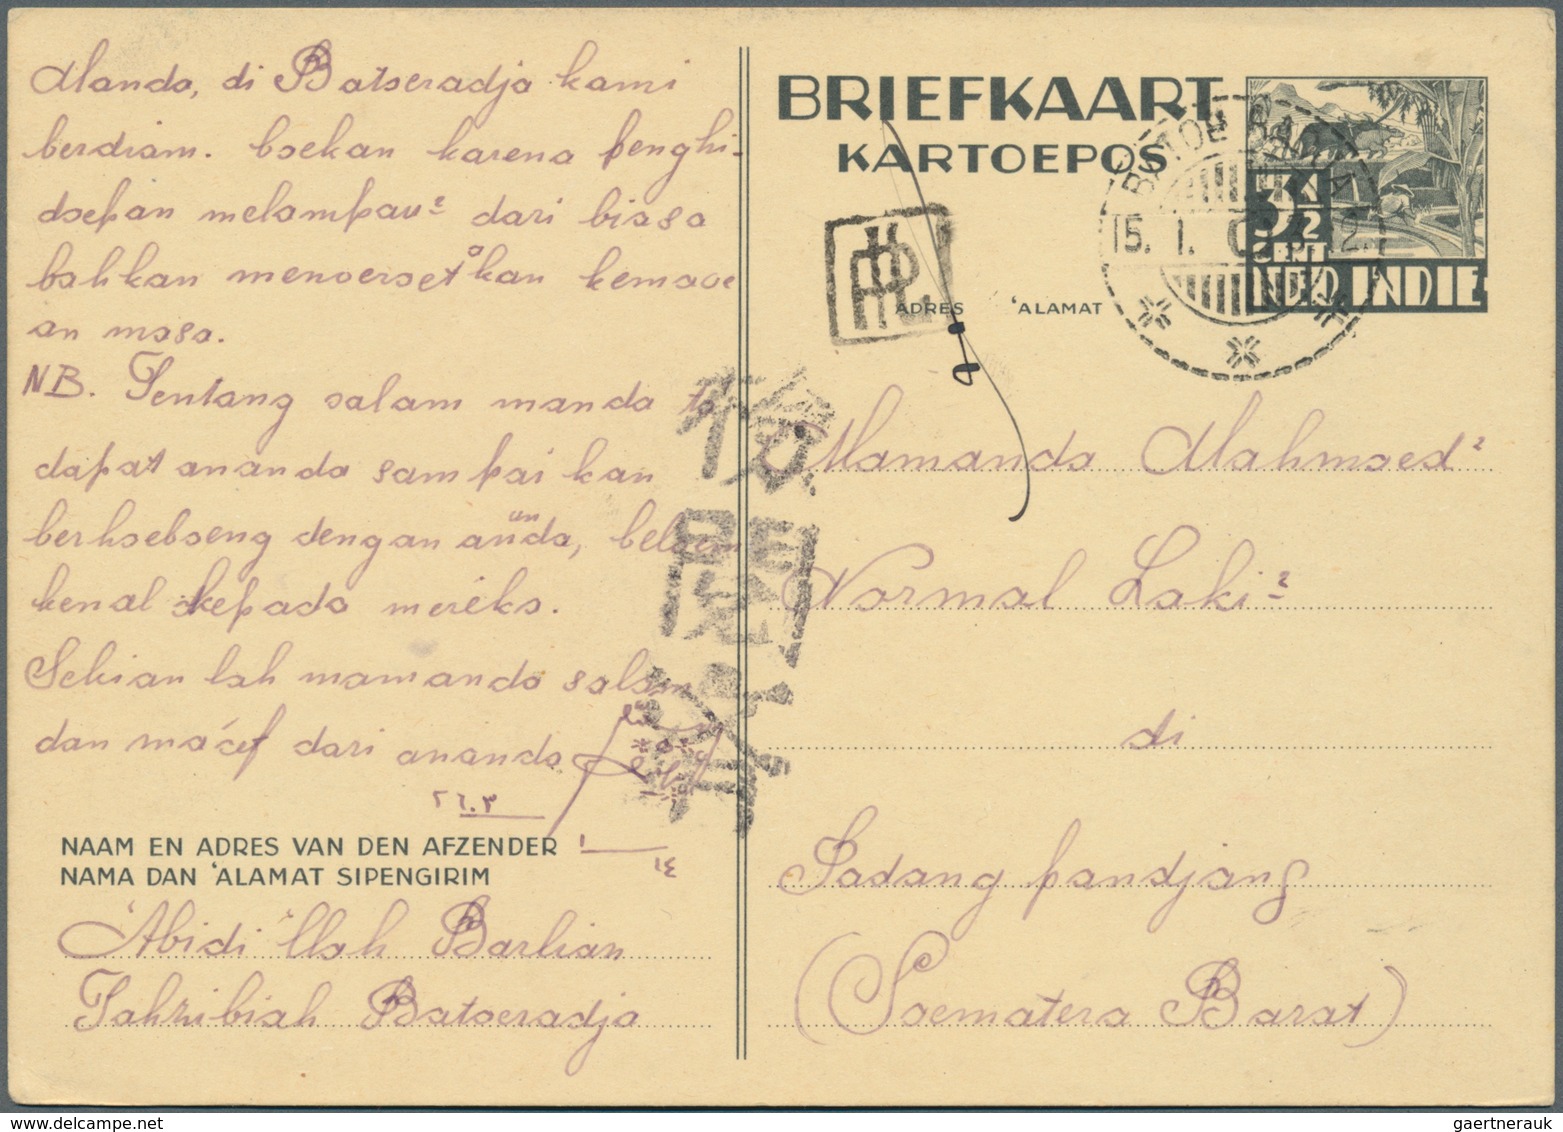 Manda, di Batoeradja kami
berdiam. boekan karena penghi-
doepan melampau² dari biasa
bahkan menoeroet kan kemaoe
an masa.
NB. Tentang salam manda ta'
dapat ananda sampai kan
berhoeboeng dengan ananda, beloem
kenal kepada mereka.
Sekian lah mamanda salam
dan ma'af dari ananda.
٢٦.٣
١
١٤
NAAM EN ADRES VAN DEN AFZENDER
NAMA DAN 'ALAMAT SIPENGIRIM
'Abidi'llah Barlian
Tahzibiah Batoeradja
BRIEFKAART
KARTOEPOS
3½
CENT
NED. INDIE
BATOE RADJA
15. 1.
ADRES 'ALAMAT
検閲済
Mamanda Mahmoed²
Normal Laki²
di
Padang pandjang
(Soematera Barat)
gaertnerauk @ delcampe.net